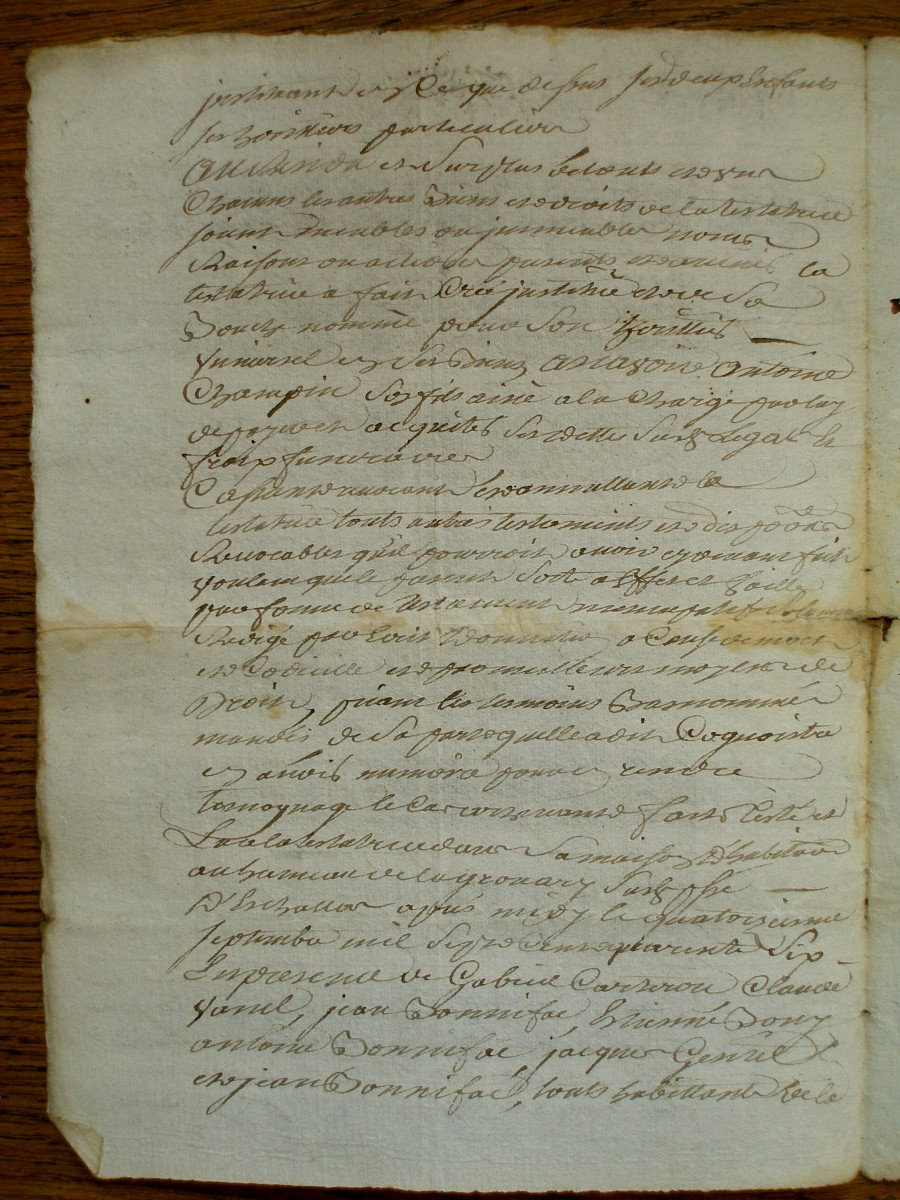 justituant en Ce que dessus ses deux Enfants
ses heritiers particuliers
Au Residu et Surplus de touts et un
Chacuns les autres Biens et droits de la testatrice
soient meubles ou jmmeubles noms
Raisons ou actions presents et avenir la
testatrice a fait Créé justitué et de Sa
Bouche nommé pour Son heritier
Vniversel en ses Biens Antoine
Champin Son fils ainé a la Charge par luy
de payer et acquiter ses dettes Susd Legats et
fraix funeraires
Cassant revocant et annullant la
testatrice touts autres testaments et disp͠ons
Revocables quil pourroit avoir cy devant fait
Voulant que le present Sorte a Effet et Vaille
par forme de testament nuncupatif
Redigé par Ecrit donnation a Cause de mort
et Codicille et par meilleurs moyens de
Droit, priant les temoins Bas nommés
mandés de Sa part quelle a dit Cognoistre
en avoir memoire pour en rendre
temoignage le Cas convenant fait Leste et
la testatrice dans Sa maison d'habitation
au hameau de Susd psse
D'Eschallas apres midy le quatorzieme
septembre mil Sept Cent quarente Six
En presence de Gabriel Claude
jean Bonnifac, Etienne Bony
antoine Bonnifac, jacques
et jean Bonnifac, touts habittant de la